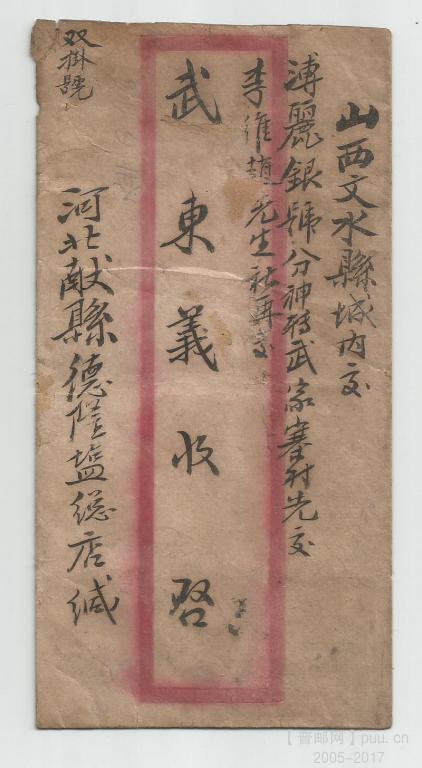 山西文水縣城内交
溥麗銀號分神转武家寨村先交
李維趙先生祈再交
武東義收啓
河北献縣德隆塩総店缄
双掛號
【晋邮网】puu.cn
2005-2017